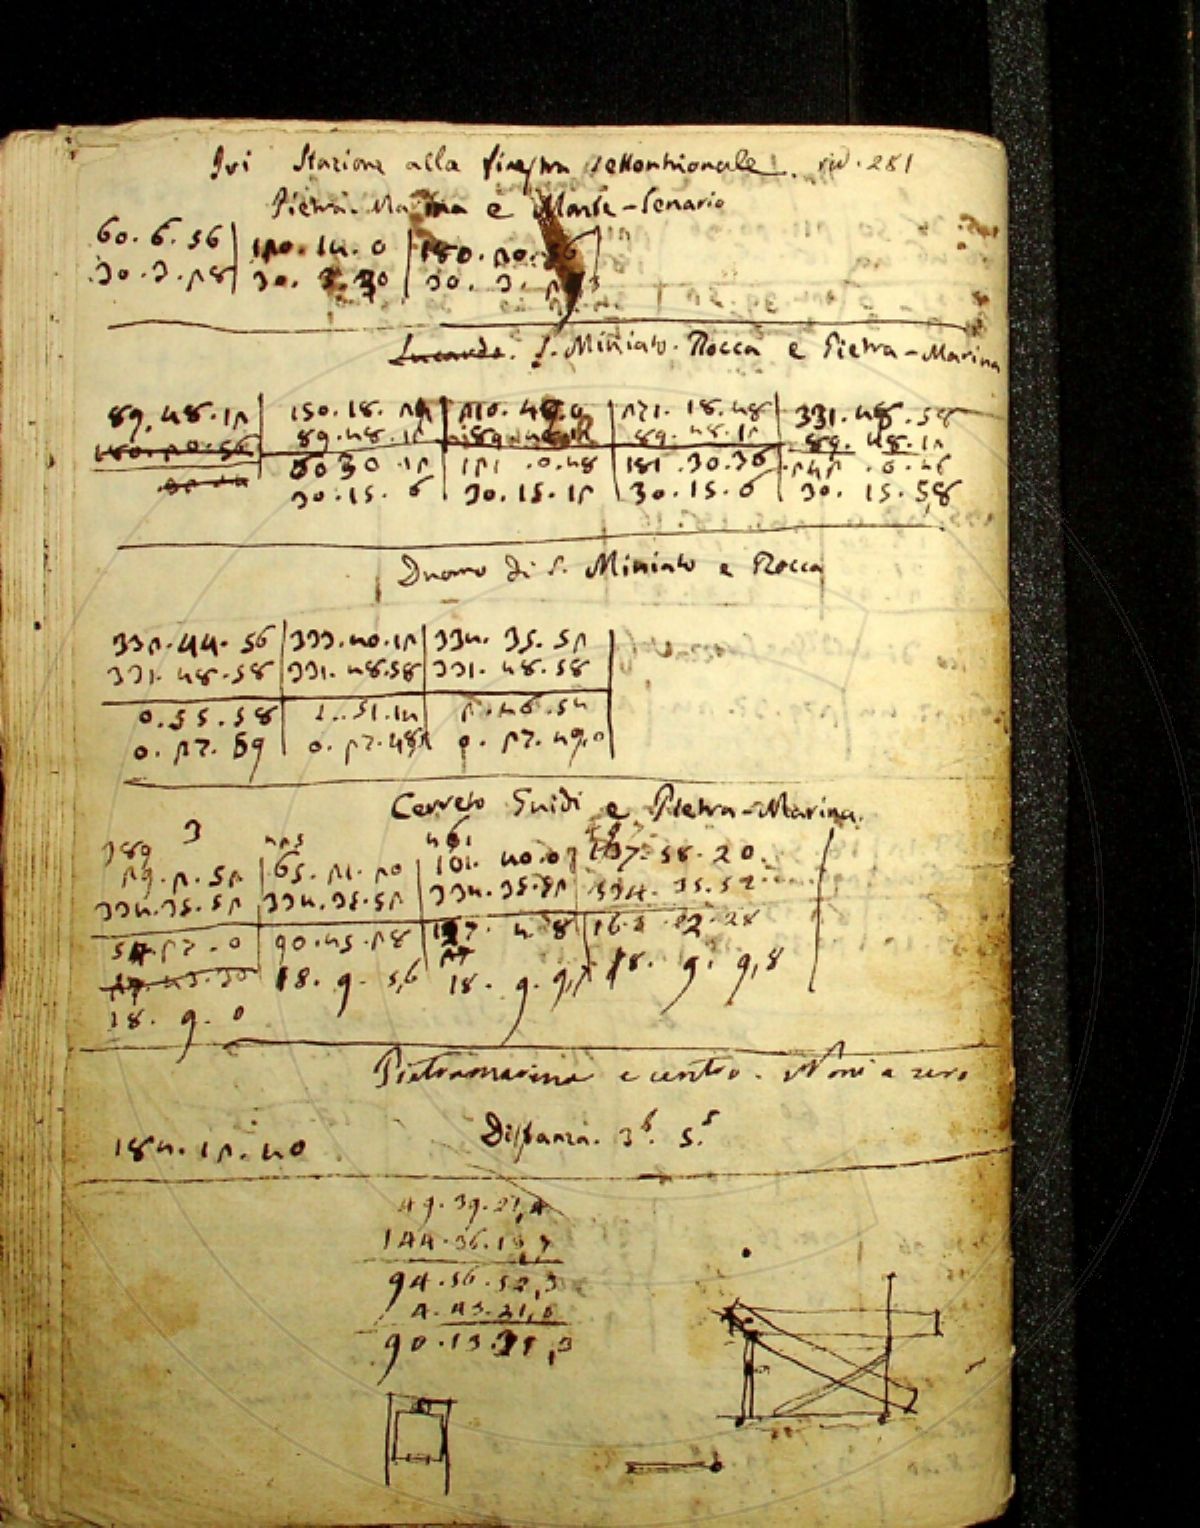 Ivi Stazione alla finestra settentrionale. vid. 281
Pietra-Marina e Monte-Senario
60.6.56 120.14.0 180.20.56
30.3.28 30.3.30 30.3.
Lucardo. S. Miniato. Rocca e Pietra-Marina
89.48.12 150.18.24 210.49.0 271.18.48 331.48.58
180.20.56 89.48.12 89.48.12 89.48.12 89.48.12
60.30.12 121.0.48 181.30.36 242.0.46
30.15.6 30.15.12 30.15.6 30.15.5,8
Duomo di S. Miniato e Rocca
332.44.56 333.40.12 334.35.52
331.48.58 331.48.58 331.48.58
0.55.58 1.51.14 2.46.54
0.27.59 0.27.48 0.27.49,0
Cerreto Guidi e Pietra-Marina.
389 3 425 461 497
29.2.52 65.21.20 101.40.0 137.58.20
334.35.52 334.35.52 334.35.52 334.35.52
54.27.0 90.45.28 127.4.8 163.22.28
27.43.30 18.9.5,6 18.9.9, 18.9.9,8
18.9.0
Pietramarina e centro. Noni a zero
184.12.40 Distanza. 3⁶. 5.⁵
49.39.27,4
144.36.19,7
94.56.52,3
4.43.21,0
90.13.31,3